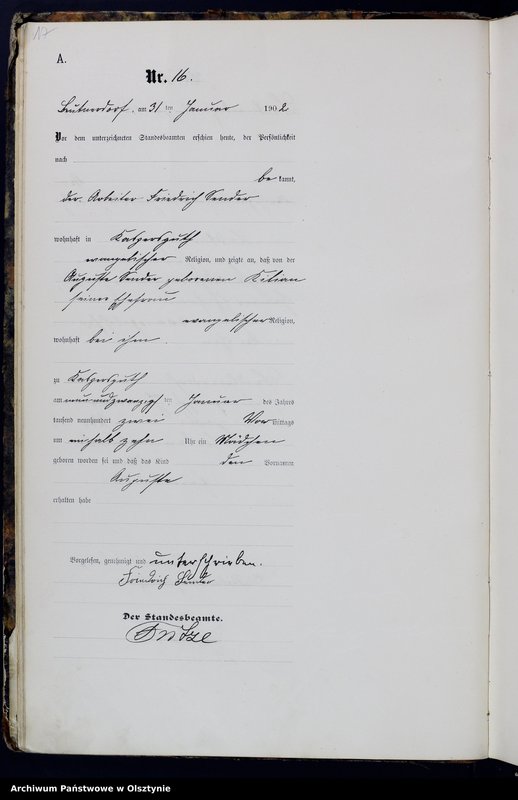 17
A.
Nr. 16.
Beutnerdorf, am 31 ten Januar 1902
Vor dem unterzeichneten Standesbeamten erschien heute, der Persönlichkeit
nach
be kannt,
der Arbeiter Friedrich Sender
wohnhaft in Kaspersguth
evangelischer Religion, und zeigte an, daß von der
Auguste Sender geborenen Kilian
seiner Ehefrau
evangelischer Religion,
wohnhaft bei ihm.
zu Kaspersguth
am neunundzwanzigsten Januar des Jahres
tausend neunhundert zwei Vor mittags
um einhalb zehn Uhr ein Mädchen
geboren worden sei und daß das Kind den Vornamen
Auguste
erhalten habe
Vorgelesen, genehmigt und unterschrieben.
Friedrich Sender
Der Standesbeamte.
Archiwum Państwowe w Olsztynie